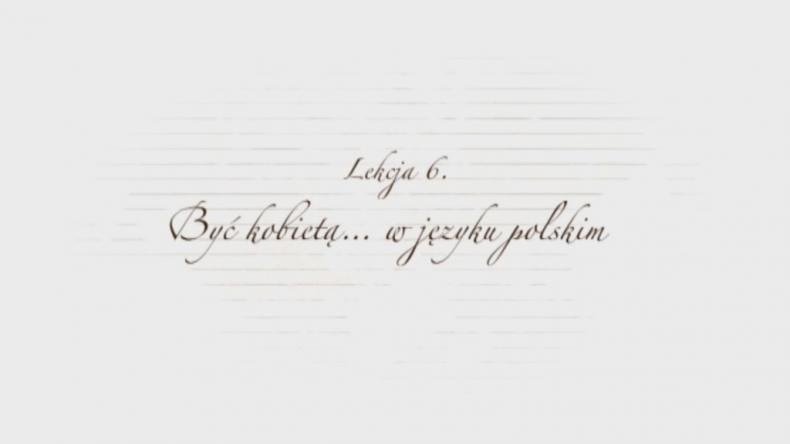 Lekcja 6.
Być kobietą... w języku polskim